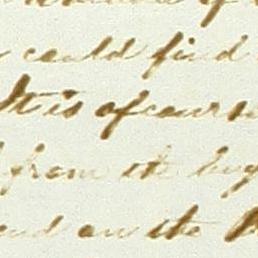 could find
It is of cours
from the
and on the